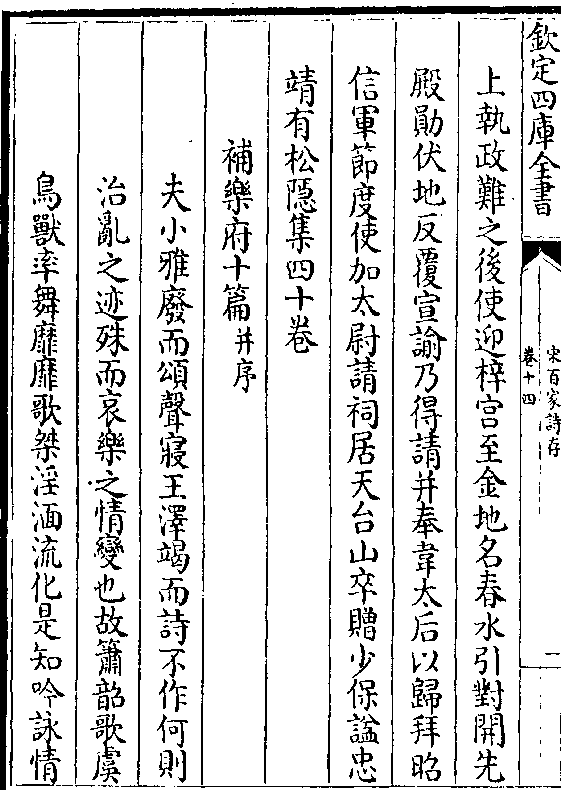 欽定四庫全書
宋百家詩存
卷十四
二
上執政難之後使迎梓宫至金地名春水引對開先
殿勛伏地反覆宣諭乃得請并奉韋太后以歸拜昭
信軍節度使加太尉請祠居天台山卒贈少保諡忠
靖有松隱集四十卷
補樂府十篇并序
夫小雅廢而頌聲寢王澤竭而詩不作何則
治亂之迹殊而哀樂之情變也故簫韶歌虞
鳥獸率舞靡靡歌桀淫湎流化是知吟詠情